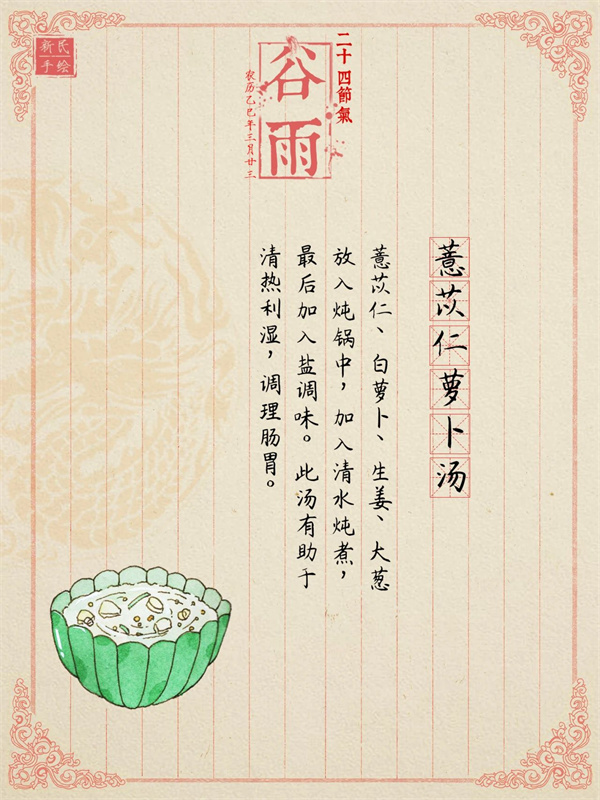 新民
手绘
二十四節氣
谷雨
农历乙巳年三月廿三
薏苡仁萝卜汤
薏苡仁、白萝卜、生姜、大葱
放入炖锅中，加入清水炖煮，
最后加入盐调味。此汤有助于
清热利湿，调理肠胃。